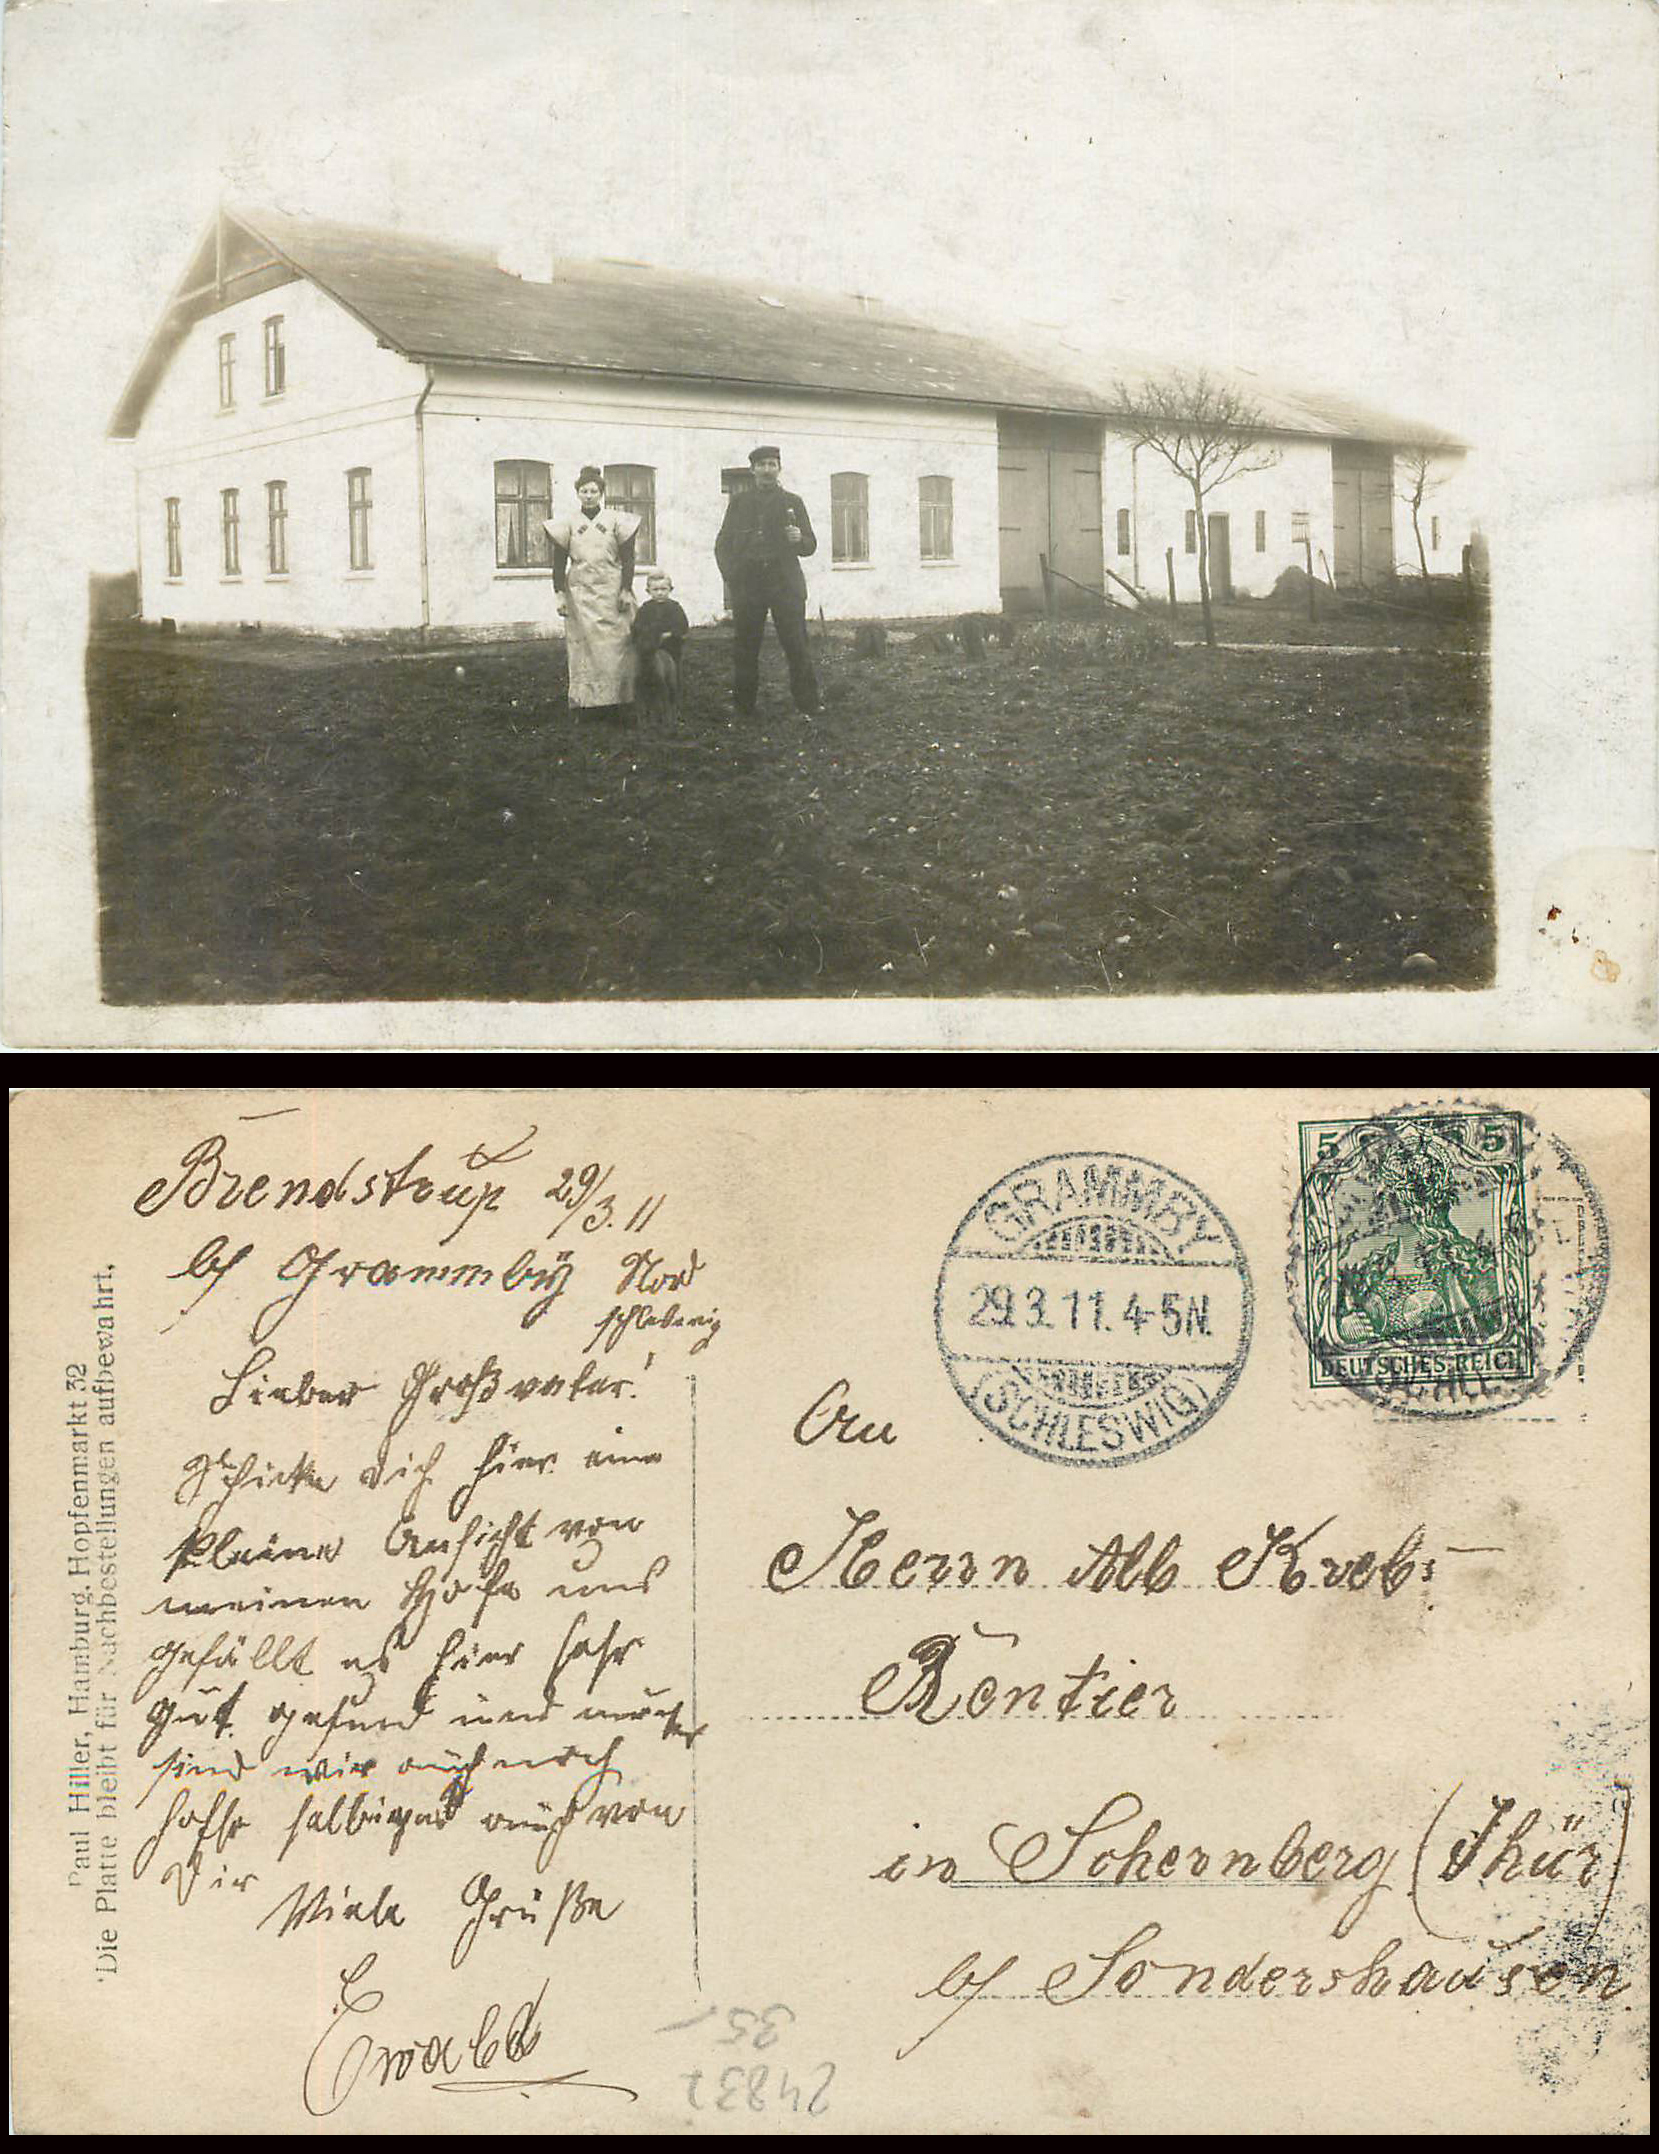 Brendstrup 29/3.11
b/ Grammbÿ Nord
schleswig
Lieber Großvater!
Schicke Dich hier eine
kleine Ansicht von
meinen Hofe uns
gefällt es hier sehr
gut. gesund und munter
sind wir auch noch
hoffe selbiges auch von
Dir
Viele Grüße
Ewald
Paul Hiller, Hamburg, Hopfenmarkt 32
Die Platte bleibt für Nachbestellungen aufbewahrt.
GRAMMBY
29.3.11.4-5N.
(SCHLESWIG)
5 5
DEUTSCHES REICH
An
Herrn Alb Krebs
Rentier
in Schernberg (Thür)
b/ Sondershausen
35
24832